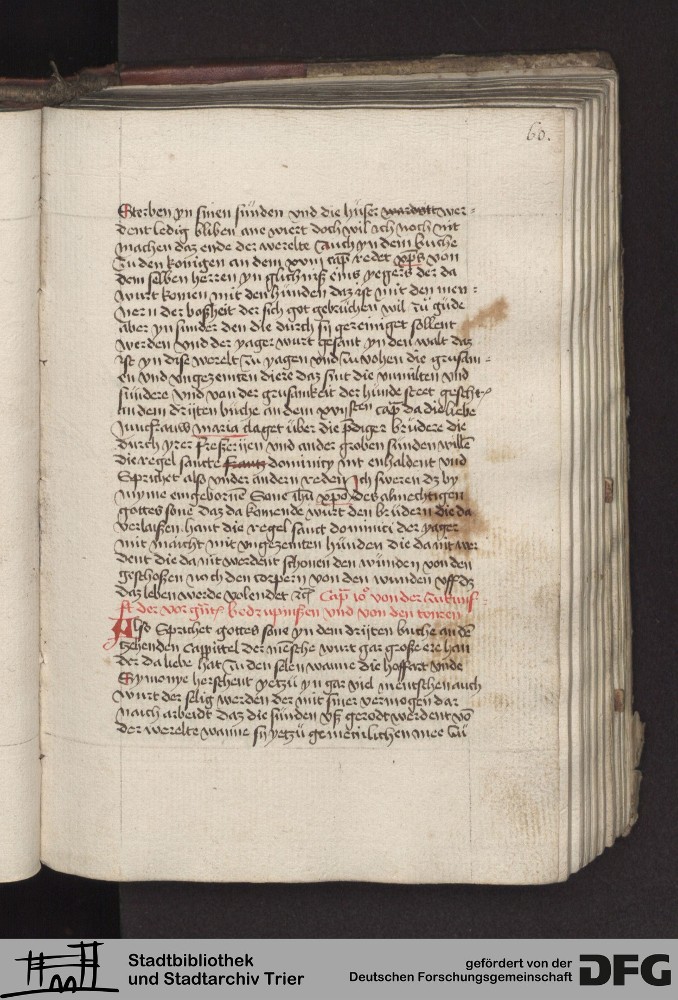 60.
Sterben yn sinen sunden vnd die huser wer=
dent ledig bliben ane wiert doch wil ich noch nit
machen daz ende der werelte Auch yn dem buche
zu den konigen an dem xviij cap redet xps von
dem selben herren yn glichniß eins yegers der da
wurt komen mit den hunden daz ist mit den men=
nern der boßheit der sich got gebruchen wil zu gude
aber yn sunder den die durch sij gereiniget sollent
werden vnd der yager wurt gesant yn den walt daz
ist yn dise werelt zu yagen vnd zu vohen die grusam=
en vnd vngezemten diere daz sint die vnmilten vnd
sundere vnd von der grusamkeit der hunde steet
an dem drijten buche an dem cap da die liebe
Juncfrauw maria claget uber die pdiger brudere die
durch yrer freßerijen vnd ander groben sunden willen
die regel sancte dominicy nit enhaldent vnd
Sprichet also vnder andern reden Ich sweren dz by
myme eingebornen Sone ihu xpo des almechtigen
gottes sone daz da komende wurt den brudern die da
verlaißen hant die regel sanct dominici der yager
mit maicht mit vngezemten hunden die da nit wer
dent die da nit werdent schonen den wunden von den
geschoßen noch den corpern von den wunden vff dz
daz leben werde volendet Cap 10 von der zukunf=
ft der vor bedrupnißen vnd von den
Also Sprichet gottes sone yn dem drijten buche an de
tzehenden cappittel der mensche wurt gar große ere han
der da liebe hat zu den selen wanne die hoffart vnde
Symonye herschent yetzu yn gar viel mentschen auch
wurt der selig werden der mit siner vermogen dar
naich arbeidt daz die sunden vß gerodt werdent vo
der werelte wanne sij yetzu gemeinlichen mee zu
Stadtbibliothek
und Stadtarchiv Trier
gefördert von der
Deutschen Forschungsgemeinschaft
DFG